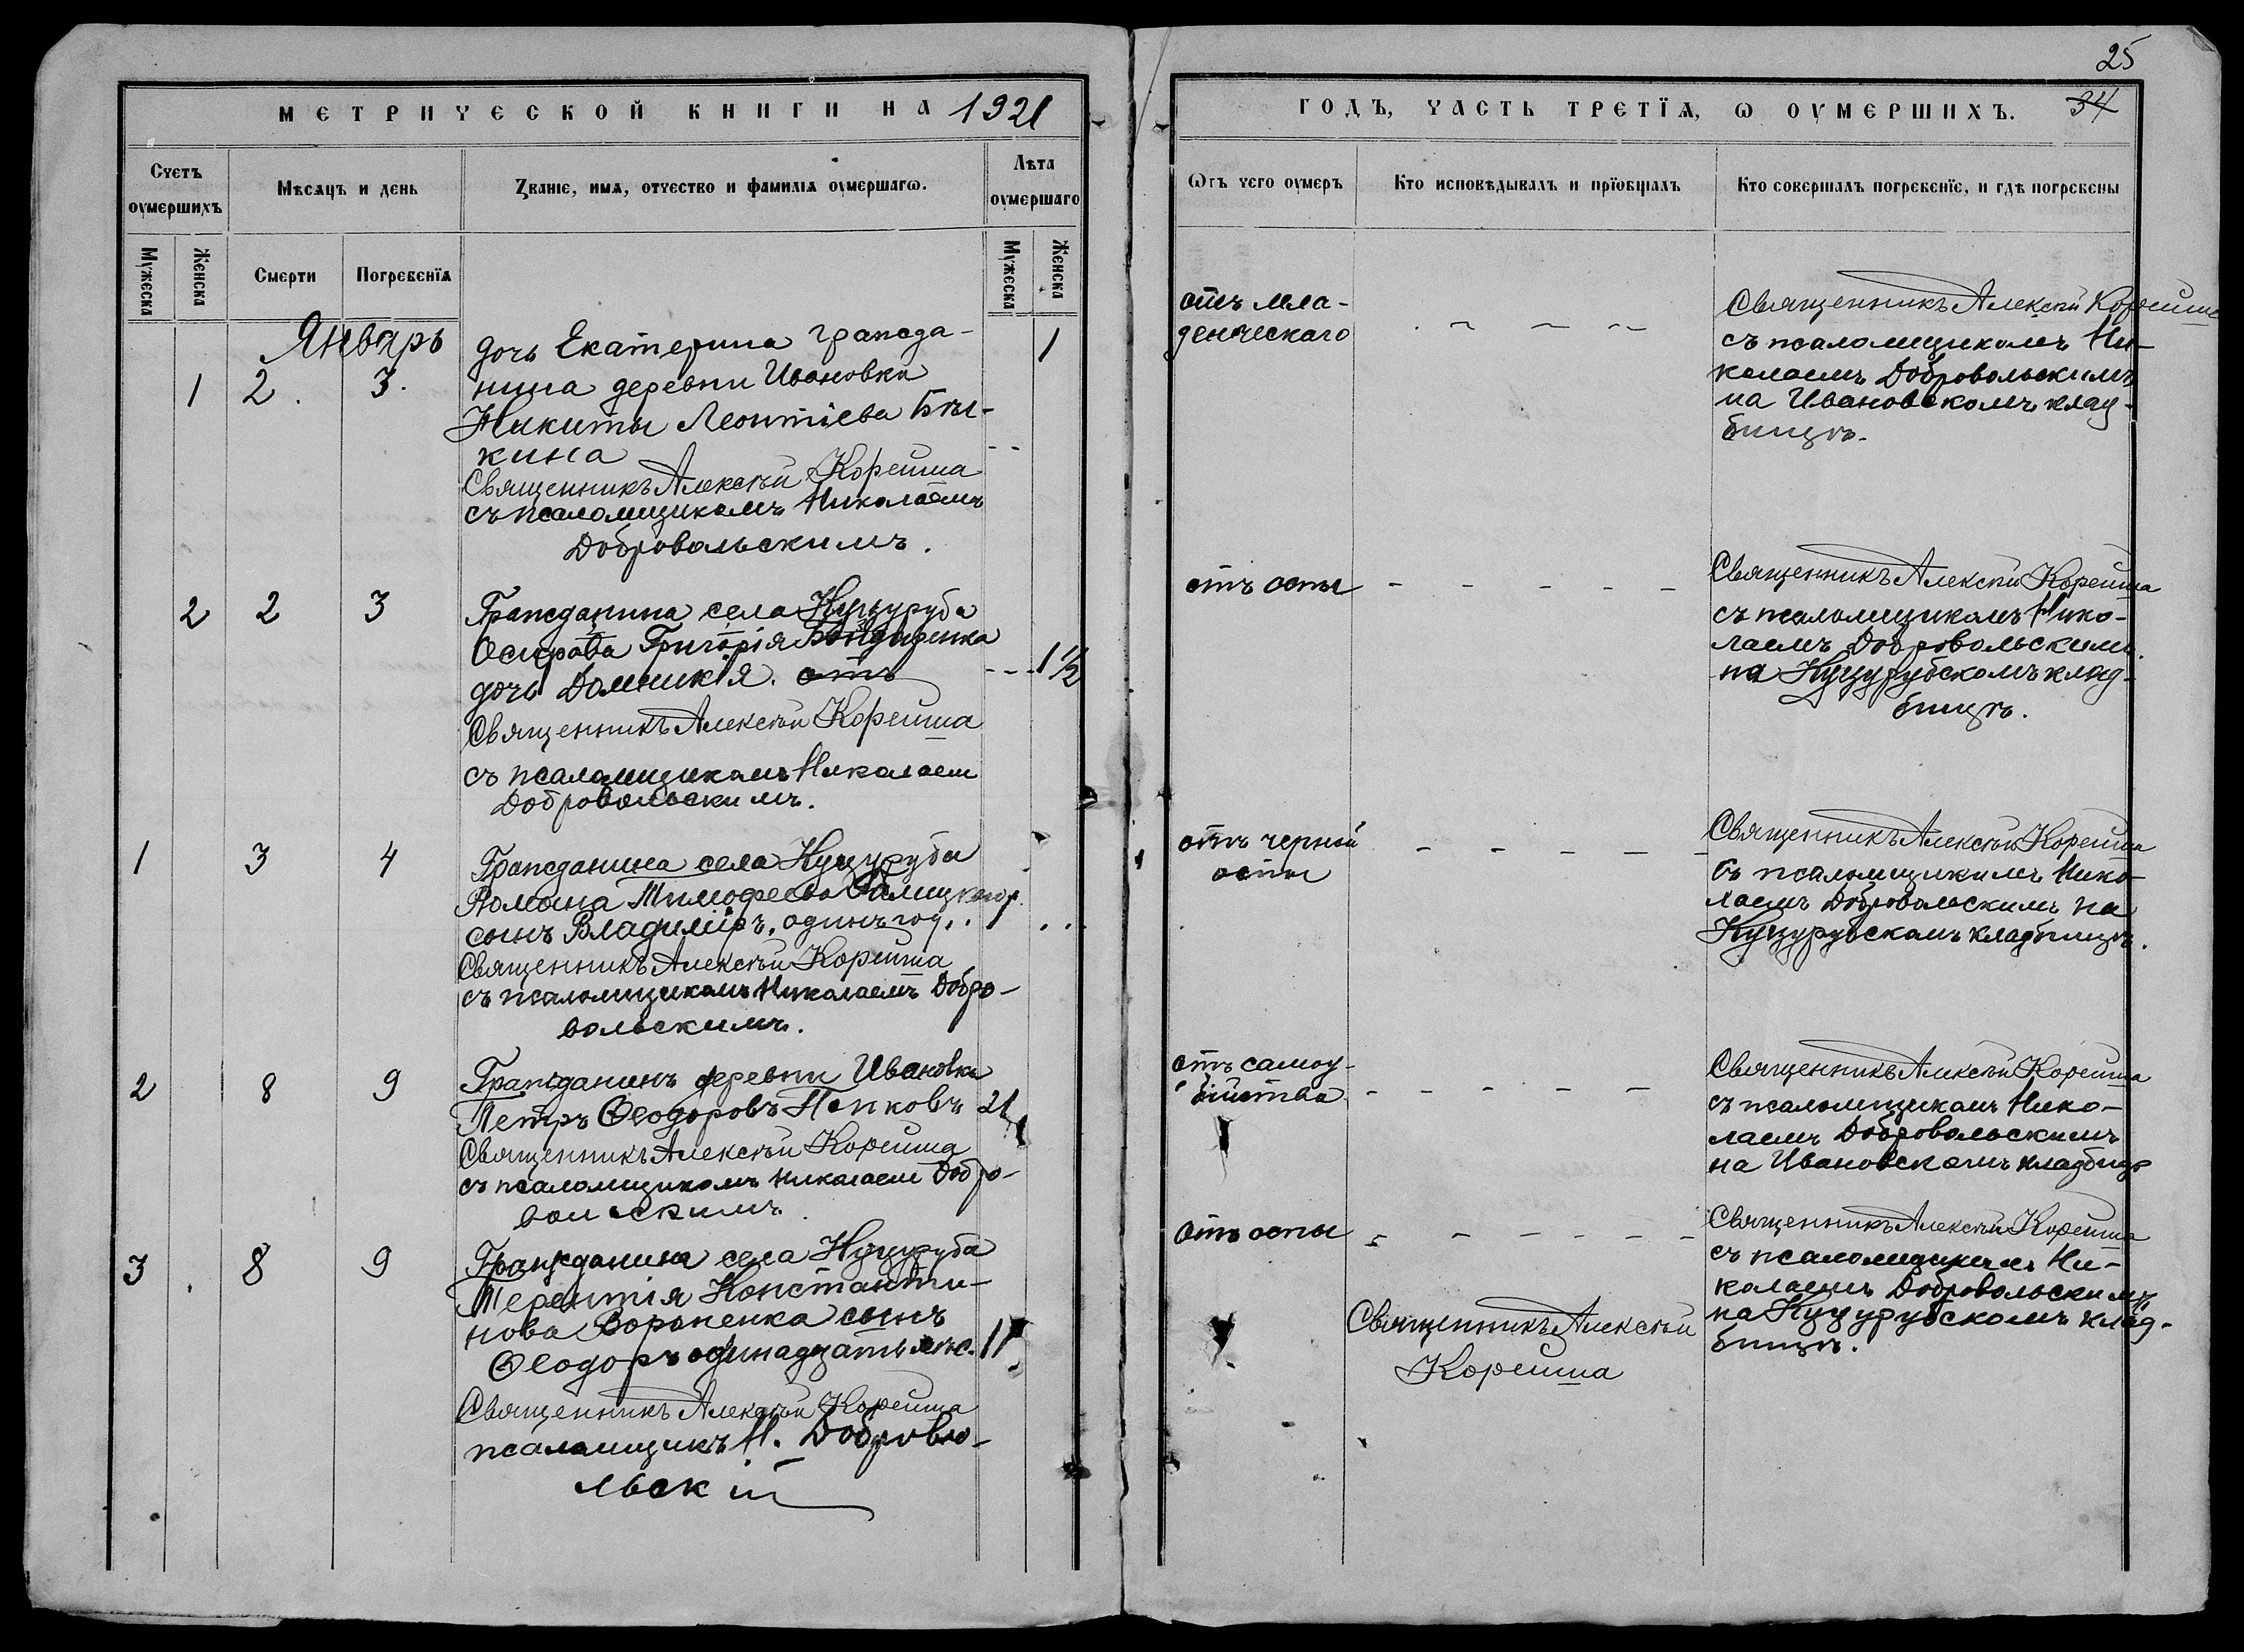 25
МЕТРИЧЕСКОЙ КНИГИ НА 1921
ГОДЪ, ЧАСТЬ ТРЕТЇѦ, Ѡ ОУМЕРШИХЪ. 34
Счетъ оумершихъ
Мѣсяцъ и день
Званіе, имѧ, отчество и фамиліѧ оумершагѡ.
Лѣта оумершаго
Ѡтъ чего оумеръ
Кто исповѣдывалъ и прїобщалъ
Кто совершалъ погребенїе, и гдѣ погребены
Мужеска
Женска
Смерти
Погребенїѧ
Мужеска
Женска
Январь
1 2. 3.
дочь Екатерина гражда-
нина деревни Ивановки
Никиты Леонтіева Бѣл-
кина
Священникъ Алексѣй Корейша
съ псаломщикомъ Николаемъ
Добровольскимъ.
1
отъ мла-
денческаго
Священникъ Алексѣй Корейша
съ псаломщикомъ Ни-
колаемъ Добровольскимъ
на Ивановскомъ клад-
бищѣ.
2 2 3
Гражданина села Куцуруба
Григорія Бондаренка
дочь Домникія. отъ
Священникъ Алексѣй Корейша
съ псаломщикомъ Николаем
Добровольскимъ.
1 1/2
отъ оспы
Священникъ Алексѣй Корейша
съ псаломщикомъ Нико-
лаемъ Добровольскимъ
на Куцурубскомъ клад-
бищѣ.
1 3 4
Гражданина села Куцуруба
Романа Тимофеева
сынъ Владиміръ, одинъ год.. 1
Священникъ Алексѣй Корейша
съ псаломщикомъ Николаемъ Добро-
вольскимъ.
отъ черной
оспы
Священникъ Алексѣй Корейша
съ псаломщикомъ Нико-
лаемъ Добровольскимъ на
Куцурубскомъ кладбищѣ.
2 8 9
Гражданинъ деревни Ивановки
Петръ Ѳеодоровъ Попковъ 21
Священникъ Алексѣй Корейша
съ псаломщикомъ Николаем Добро-
вольскимъ
отъ самоу-
бійства
Священникъ Алексѣй Корейша
съ псаломщикомъ Нико-
лаемъ Добровольскимъ
на Ивановскомъ кладбищѣ
3 8 9
Гражданина села Куцуруба
Терентія Константи-
нова Вороненка сынъ
Ѳеодоръ одинадцать мѣс. 11
Священникъ Алексѣй Корейша
псаломщикъ Н. Доброво-
льскій
отъ оспы
Священникъ Алексѣй
Корейша
Священникъ Алексѣй Корейша
съ псаломщикомъ Ни-
колаемъ Добровольскимъ
на Куцурубскомъ клад-
бищѣ.